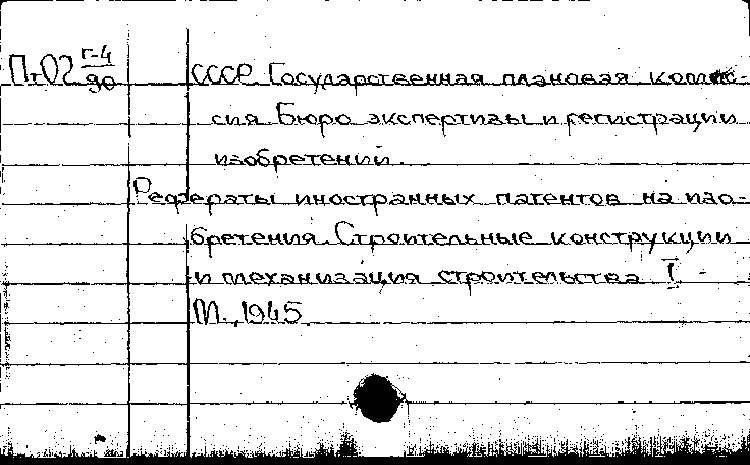 Пт02 г-4/90
СССР. Государственная плановая комис-
сия. Бюро экспертизы и регистрации
изобретений.
Рефераты иностранных патентов на изо-
бретения. Строительные конструкции
и механизация строительства I -
М., 1945.